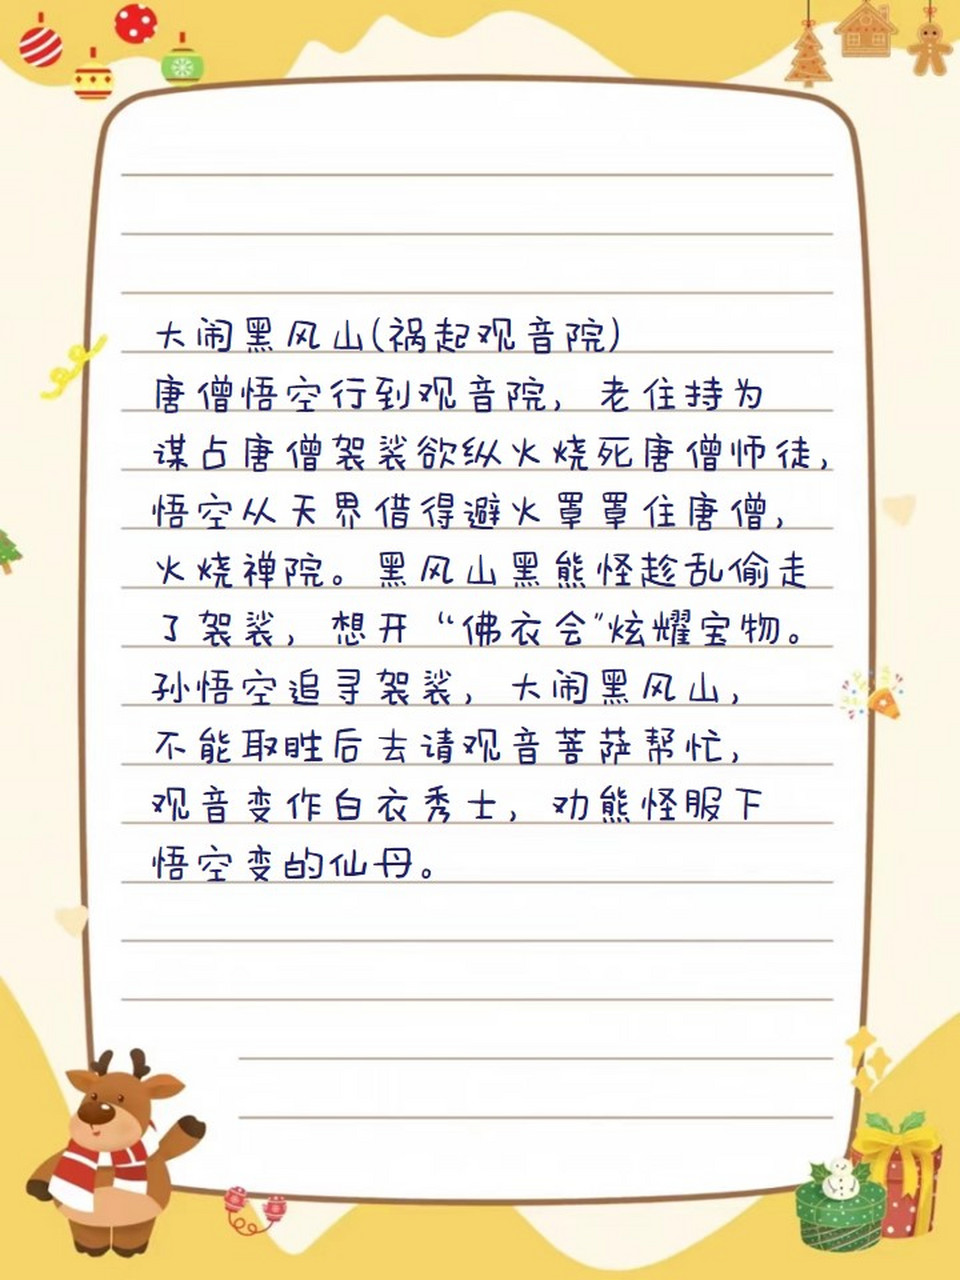 大闹黑风山(祸起观音院)
唐僧悟空行到观音院，老住持为
谋占唐僧袈裟欲纵火烧死唐僧师徒，
悟空从天界借得避火罩罩住唐僧，
火烧禅院。黑风山黑熊怪趁乱偷走
了袈裟，想开“佛衣会”炫耀宝物。
孙悟空追寻袈裟，大闹黑风山，
不能取胜后去请观音菩萨帮忙，
观音变作白衣秀士，劝熊怪服下
悟空变的仙丹。